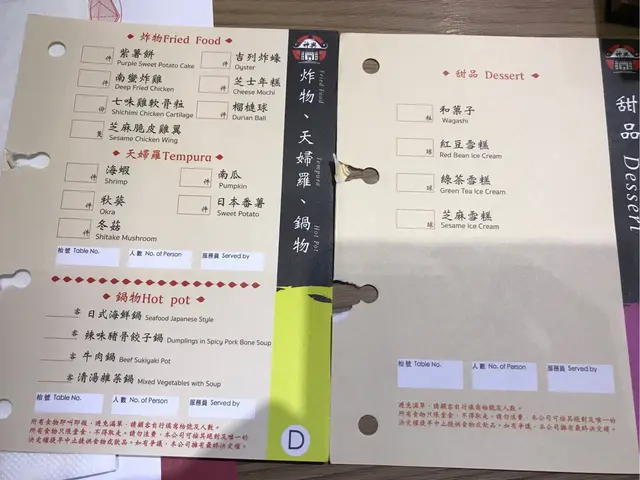 炸物Fried Food
件 紫薯餅
Purple Sweet Potato Cake
件 吉列炸蠔
Oyster
件 南蠻炸雞
Deep Fried Chicken
件 芝士年糕
Cheese Mochi
份 七味雞軟骨粒
Shichimi Chicken Cartilage
件 榴槤球
Durian Ball
隻 芝麻脆皮雞翼
Sesame Chicken Wing
天婦羅Tempura
件 海蝦
Shrimp
件 南瓜
Pumpkin
件 秋葵
Okra
件 日本番薯
Sweet Potato
件 冬菇
Shitake Mushroom
枱號 Table No. 人數 No. of Person 服務員 Served by
鍋物Hot pot
客 日式海鮮鍋 Seafood Japanese Style
客 辣味豬骨餃子鍋 Dumplings in Spicy Pork Bone Soup
客 牛肉鍋 Beef Sukiyaki Pot
客 清湯雜菜鍋 Mixed Vegetables with Soup
枱號 Table No. 人數 No. of Person 服務員 Served by
所有食物即叫即做，避免濫單，請顧客自行填寫枱號及人數。
所有食物只限堂食，不得取走，請勿浪費，本公司可按其絕對及唯一的
決定權提早中止提供食物或飲品，如有爭議，本公司擁有最終決定權。
炸物、天婦羅、鍋物
Fried Food Tempura Hot Pot
D
甜品 Dessert
粒 和菓子
Wagashi
球 紅豆雪糕
Red Bean Ice Cream
球 綠茶雪糕
Green Tea Ice Cream
球 芝麻雪糕
Sesame Ice Cream
枱號 Table No. 人數 No. of Person 服務員 Served by
避免濫單，請顧客自行填寫枱號及人數。
所有食物只限堂食，不得取走，請勿浪費，本公司可按其絕對及唯一的
決定權提早中止提供食物或飲品，如有爭議，本公司擁有最終決定權。
甜品 Dessert